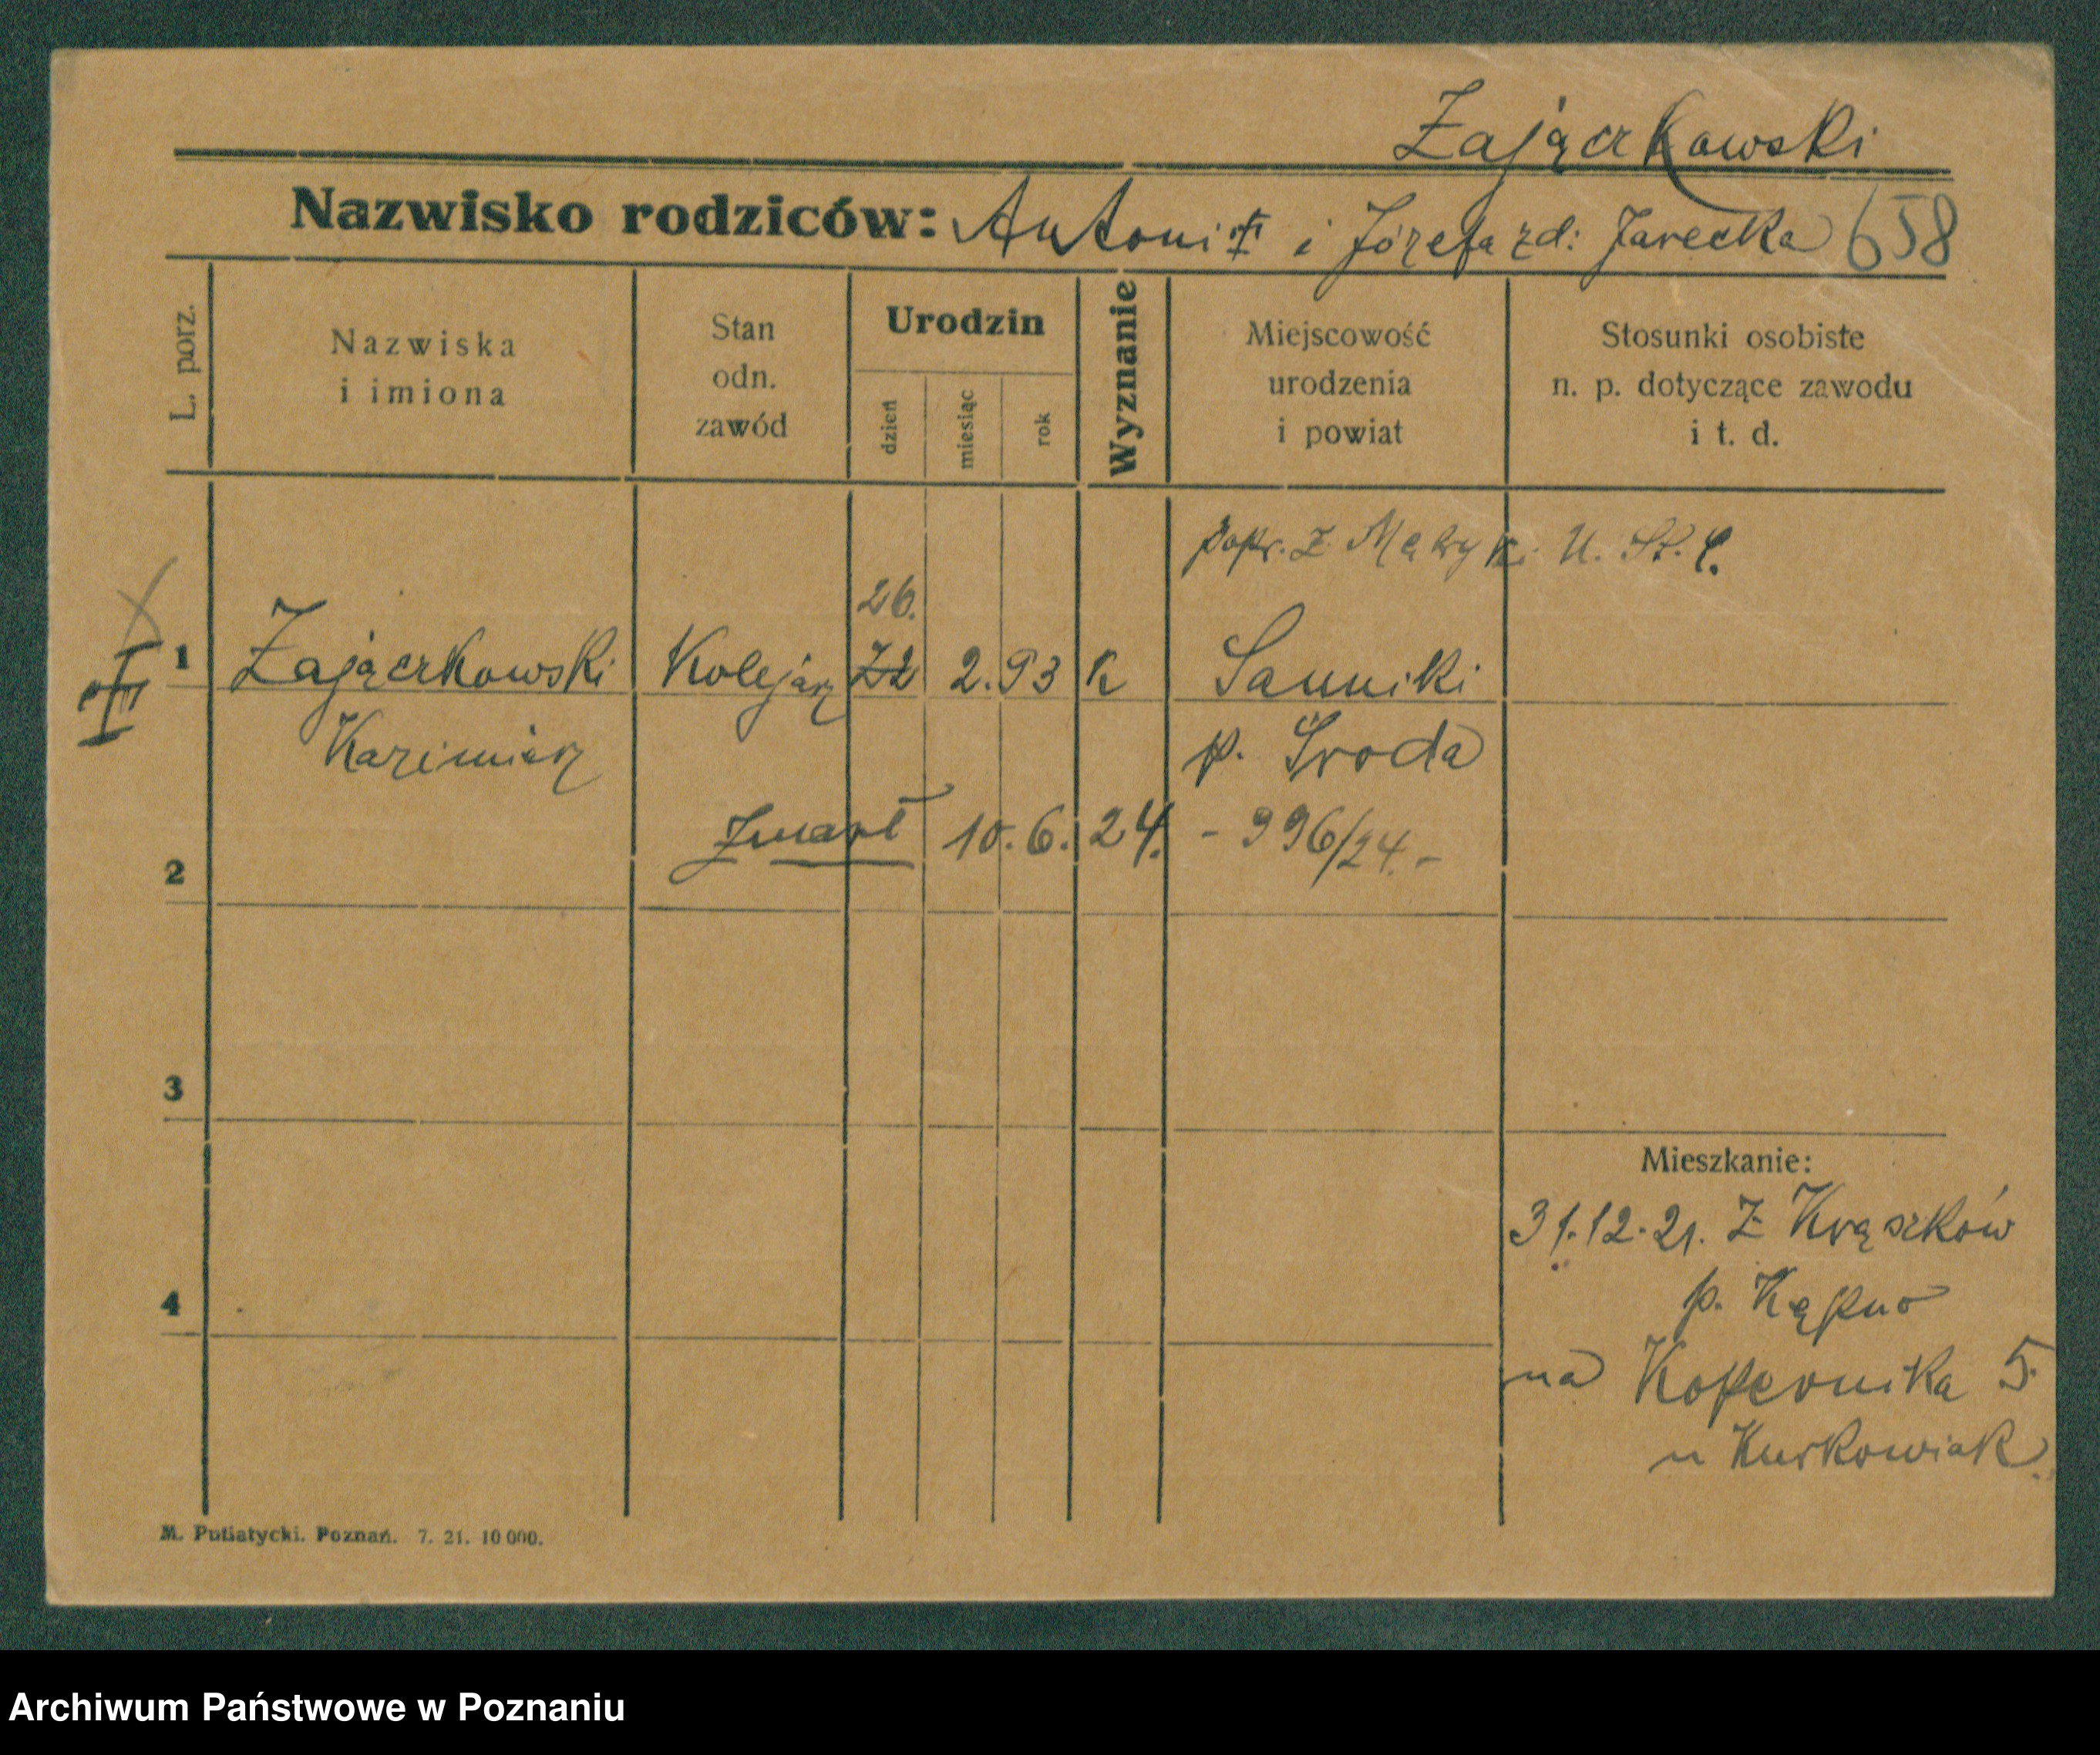 Zajączkowski
Nazwisko rodziców: Antoni ‡ i Józefa zd: Jarecka 658
L. porz.
Nazwiska
i imiona
Stan
odn.
zawód
Urodzin
dzień
miesiąc
rok
Wyznanie
Miejscowość
urodzenia
i powiat
Stosunki osobiste
n. p. dotyczące zawodu
i t. d.
popr. z U. St. C.
26.
1 Zajączkowski Kolejarz 22 2. 93 K Sanniki
Kazimierz p. Środa
Zmarł 10. 6. 24. - 996/24. -
2
3
Mieszkanie:
31.12.21. Z Krążków
4 p. Kępno
na Kopernika 5.
u Kurkowiak.
M. Putiatycki. Poznań. 7. 21. 10 000.
Archiwum Państwowe w Poznaniu